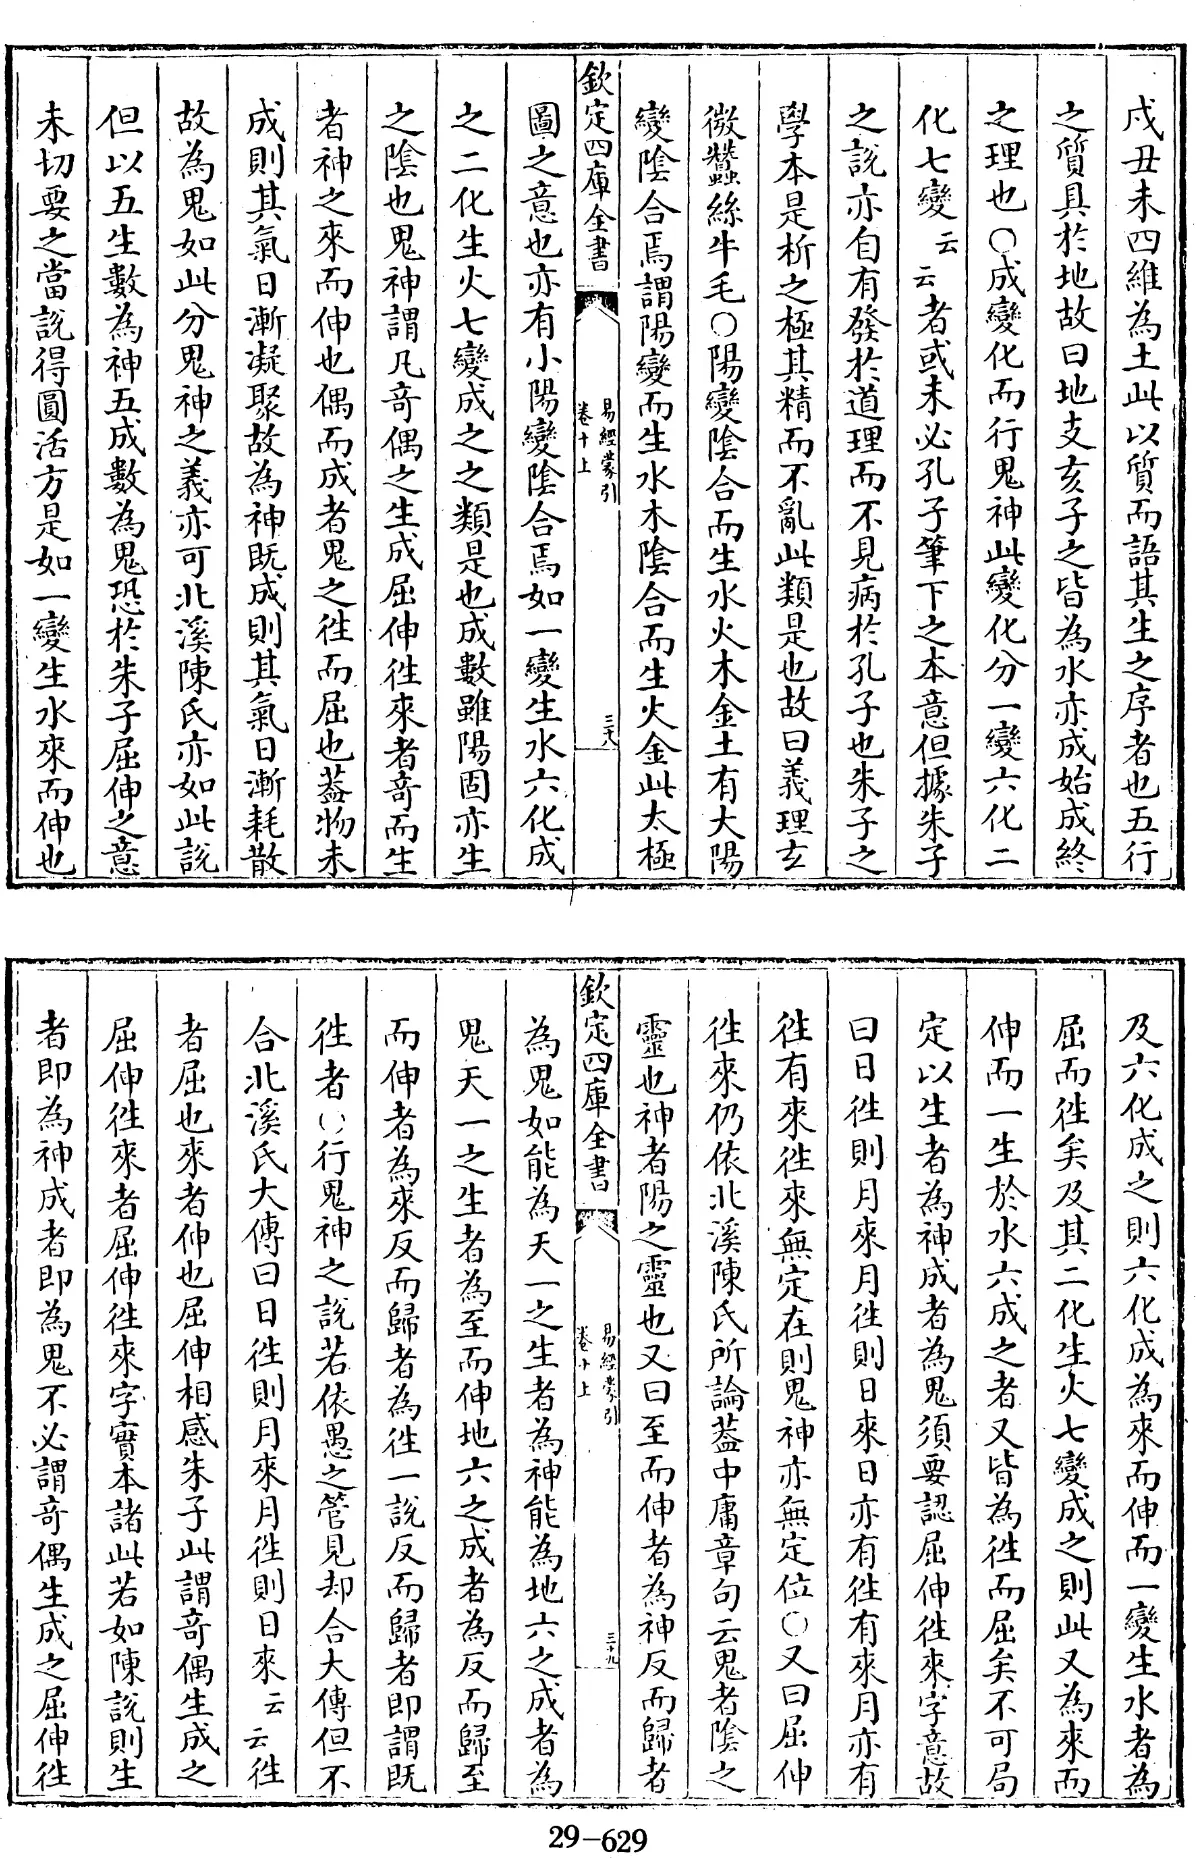 戍丑未四維為土此以質而語其生之序者也五行
之質具於地故曰地支亥子之皆為水亦成始成終
之理也○成變化而行鬼神此變化分一變六化二
化七變云云者或未必孔子筆下之本意但據朱子
之説亦自有發於道理而不見病於孔子也朱子之
學本是析之極其精而不亂此類是也故曰義理玄
微蠶絲牛毛○陽變陰合而生水火木金土有大陽
變陰合焉謂陽變而生水木陰合而生火金此太極
欽定四庫全書
易經蒙引
卷十上
三十八
圖之意也亦有小陽變陰合焉如一變生水六化成
之二化生火七變成之之類是也成數雖陽固亦生
之陰也鬼神謂凡奇偶之生成屈伸徃來者奇而生
者神之來而伸也偶而成者鬼之徃而屈也葢物未
成則其氣日漸凝聚故為神既成則其氣日漸耗散
故為鬼如此分鬼神之義亦可北溪陳氏亦如此説
但以五生數為神五成數為鬼恐於朱子屈伸之意
未切要之當説得圓活方是如一變生水來而伸也
及六化成之則六化成為來而伸而一變生水者為
屈而徃矣及其二化生火七變成之則此又為來而
伸而一生於水六成之者又皆為徃而屈矣不可局
定以生者為神成者為鬼須要認屈伸徃來字意故
曰日徃則月來月徃則日來日亦有徃有來月亦有
徃有來徃來無定在則鬼神亦無定位○又曰屈伸
徃來仍依北溪陳氏所論葢中庸章句云鬼者陰之
靈也神者陽之靈也又曰至而伸者為神反而歸者
欽定四庫全書
易經蒙引
卷十上
三十九
為鬼如能為天一之生者為神能為地六之成者為
鬼天一之生者為至而伸地六之成者為反而歸至
而伸者為來反而歸者為徃一説反而歸者即謂既
徃者○行鬼神之説若依愚之管見却合大傳但不
合北溪氏大傳曰日徃則月來月徃則日來云云徃
者屈也來者伸也屈伸相感朱子此謂奇偶生成之
屈伸徃來者屈伸徃來字實本諸此若如陳説則生
者即為神成者即為鬼不必謂奇偶生成之屈伸徃
29-629